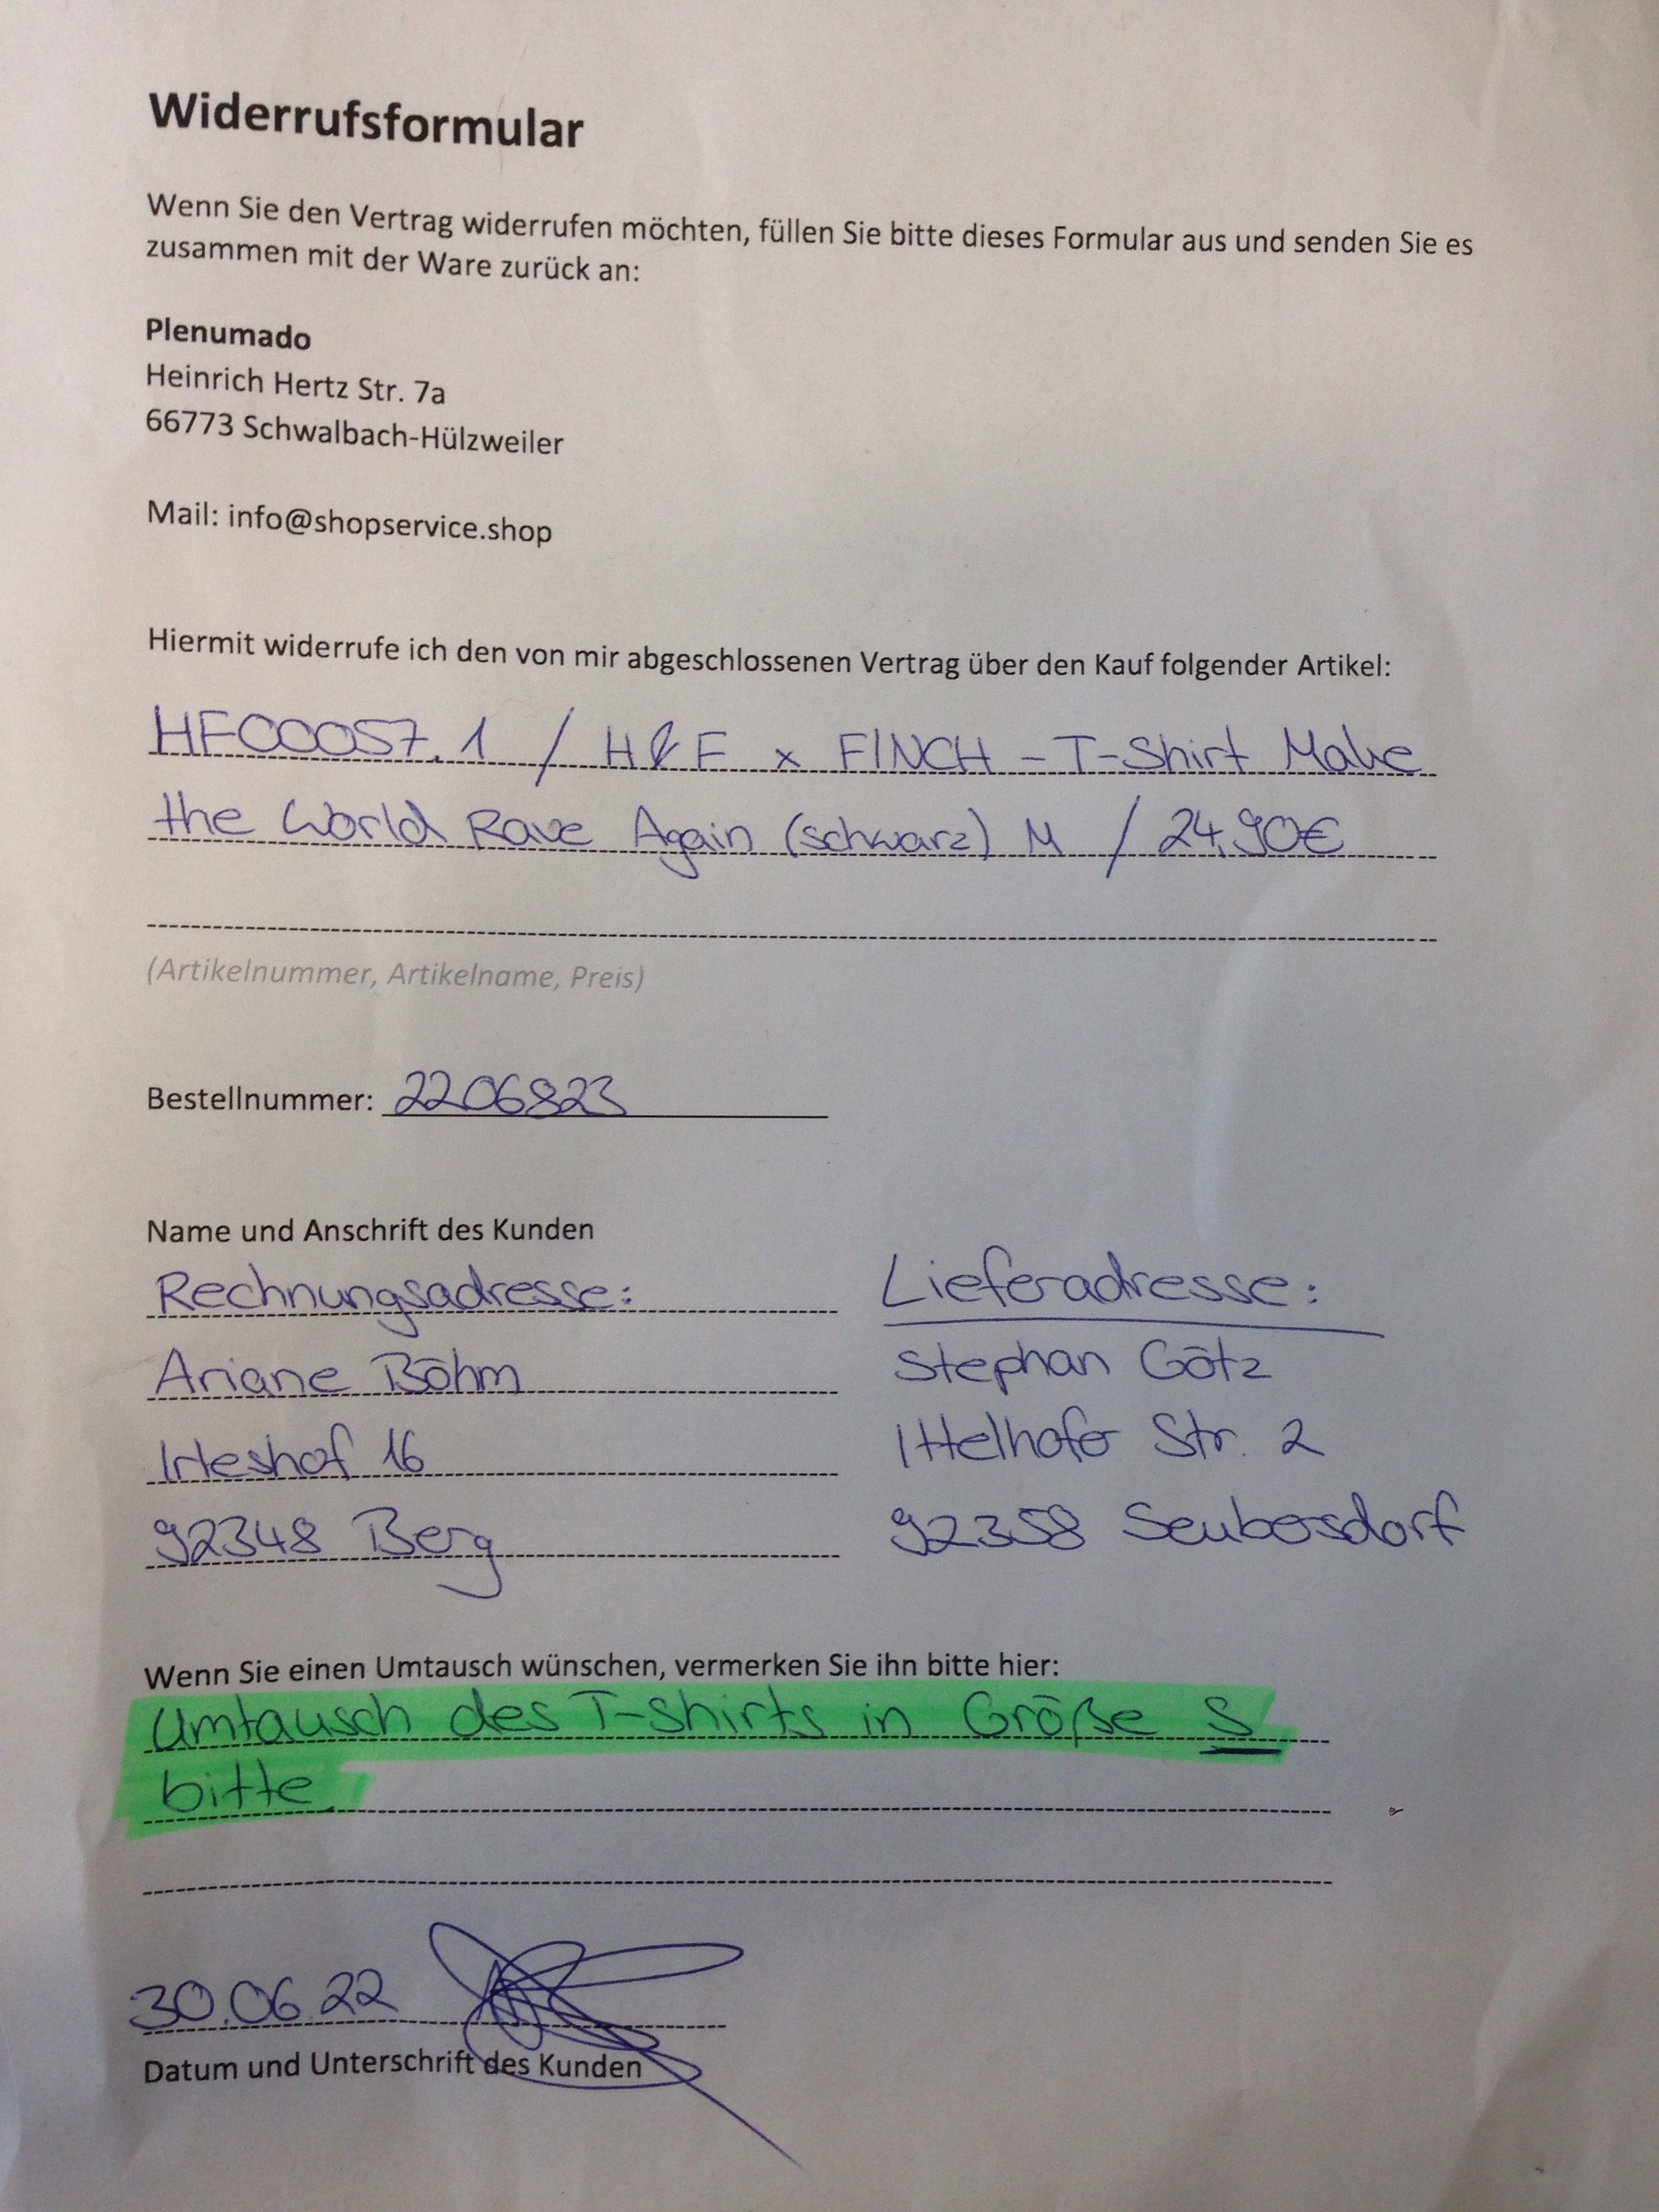 Widerrufsformular
Wenn Sie den Vertrag widerrufen möchten, füllen Sie bitte dieses Formular aus und senden Sie es
zusammen mit der Ware zurück an:
Plenumado
Heinrich Hertz Str. 7a
66773 Schwalbach-Hülzweiler
Mail: info@shopservice.shop
Hiermit widerrufe ich den von mir abgeschlossenen Vertrag über den Kauf folgender Artikel:
HF00057.1 / H&F x FINCH - T-Shirt Make
the World Rave Again (schwarz) M / 24,90€
(Artikelnummer, Artikelname, Preis)
Bestellnummer: 2206823
Name und Anschrift des Kunden
Rechnungsadresse:
Ariane Böhm
Irleshof 16
92348 Berg
Lieferadresse:
Stephan Götz
Ittelhofer Str. 2
92358 Seubersdorf
Wenn Sie einen Umtausch wünschen, vermerken Sie ihn bitte hier:
Umtausch des T-Shirts in Größe S
bitte.
30.06.22
Datum und Unterschrift des Kunden